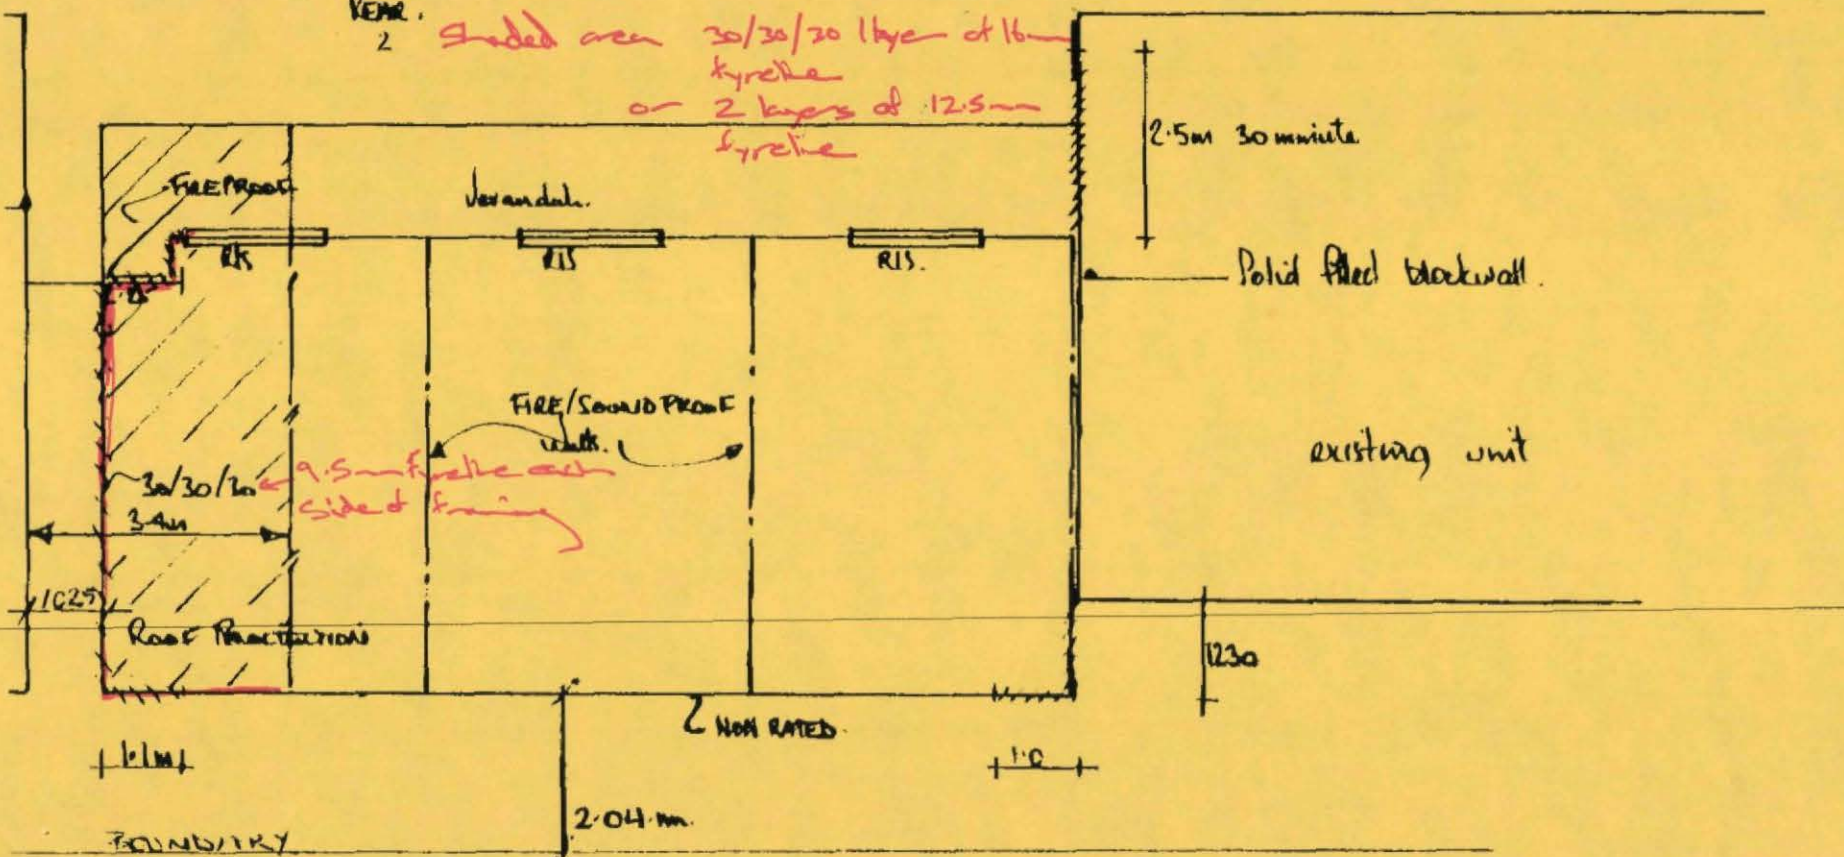 REAR.
2
Shaded area 30/30/30 1 layer of 16mm
fyreline
or 2 layers of 12.5mm
fyreline
2.5m 30 minute
FIREPROOF
Verandah.
R/S
R/S
R/S.
Solid filled blockwall.
FIRE/SOUND PROOF
walls.
existing unit
30/30/30
9.5mm fyreline each
side of framing
3.4m
1025
ROOF PROTECTION
1230
NON RATED.
1.1m
1.0
2.04 m.
BOUNDARY